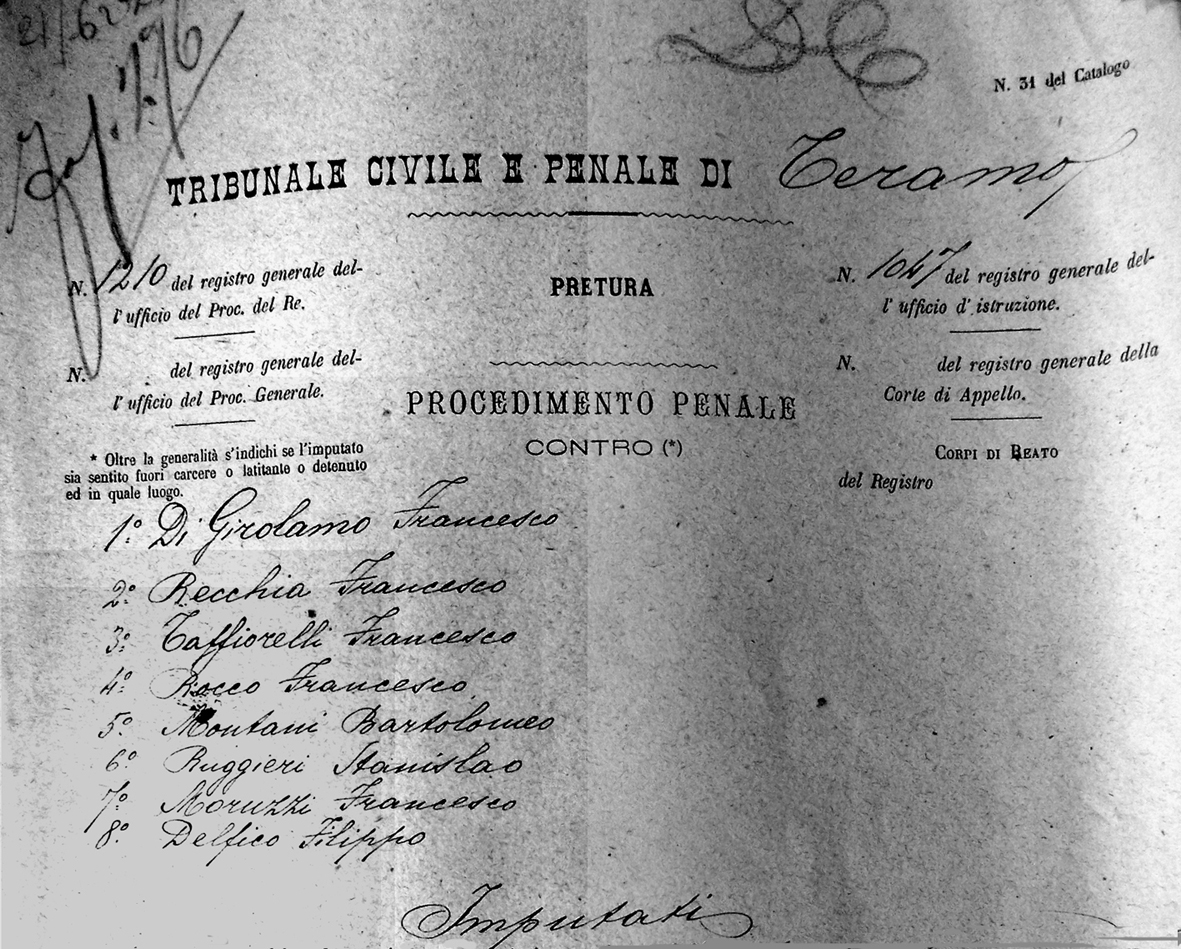 N. 31 del Catalogo
TRIBUNALE CIVILE E PENALE DI Teramo
N. 1210 del registro generale del-
l'ufficio del Proc. del Re.
N. del registro generale del-
l'ufficio del Proc. Generale.
* Oltre la generalità s'indichi se l'imputato
sia sentito fuori carcere o latitante o detenuto
ed in quale luogo.
PRETURA
PROCEDIMENTO PENALE
CONTRO (*)
N. 1047 del registro generale del-
l'ufficio d'istruzione.
N. del registro generale della
Corte di Appello.
CORPI DI REATO
del Registro
1º Di Girolamo Francesco
2º Recchia Francesco
3º Taffiorelli Francesco
4º Rocco Francesco
5º Montani Bartolomeo
6º Ruggieri Stanislao
7º Moruzzi Francesco
8º Delfico Filippo
Imputati